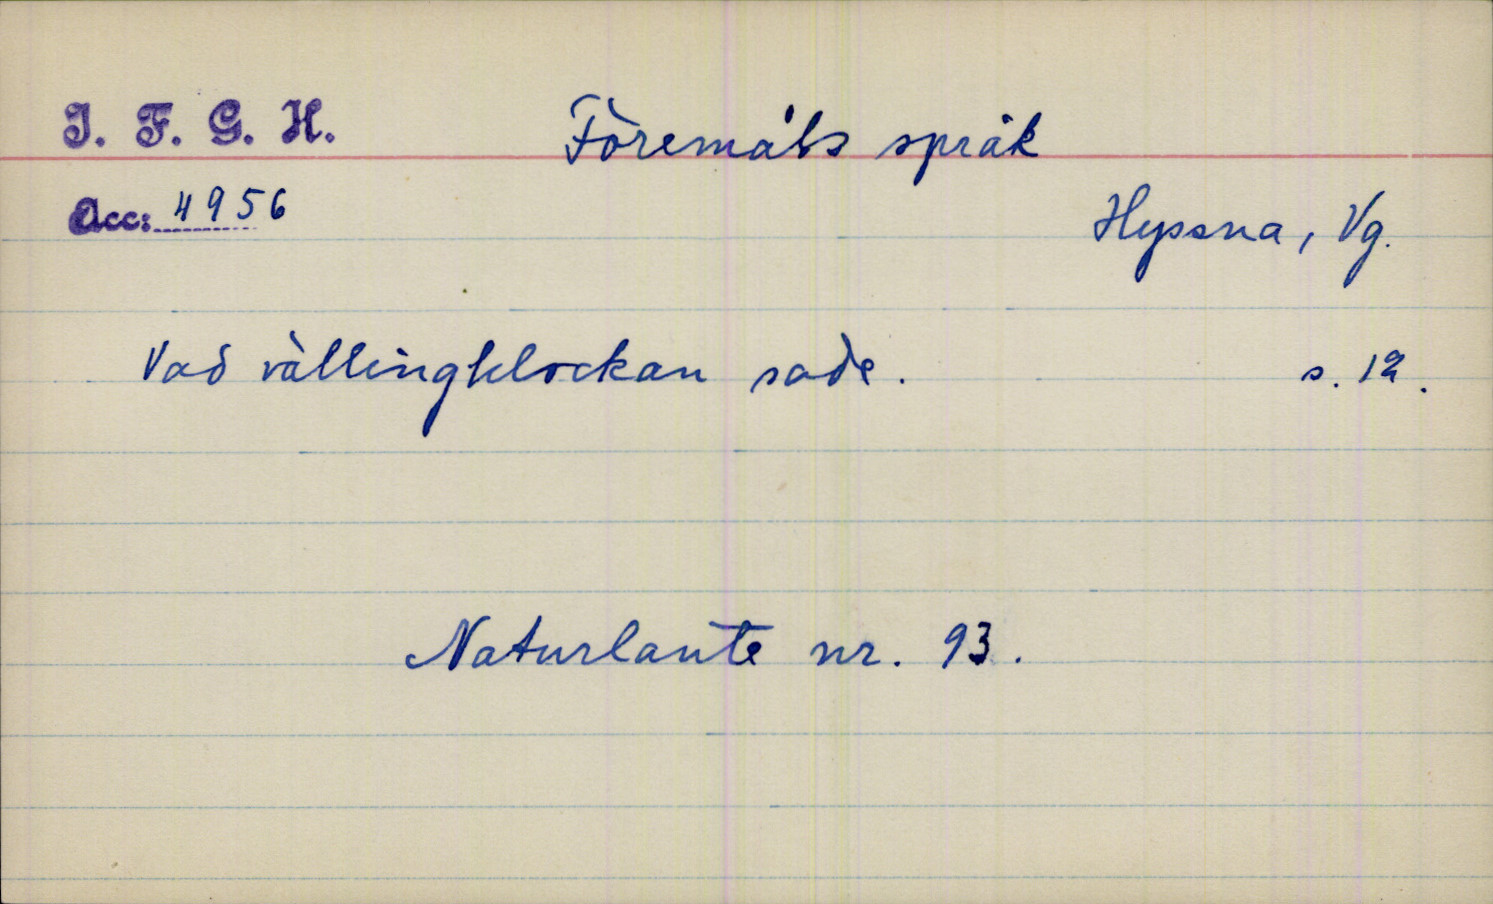 I. F. G. H.
Föremåls språk
Acc: 4956
Hyssna, Vg.
Vad vällingklockan sade. s. 12.
Naturlaute nr. 93.